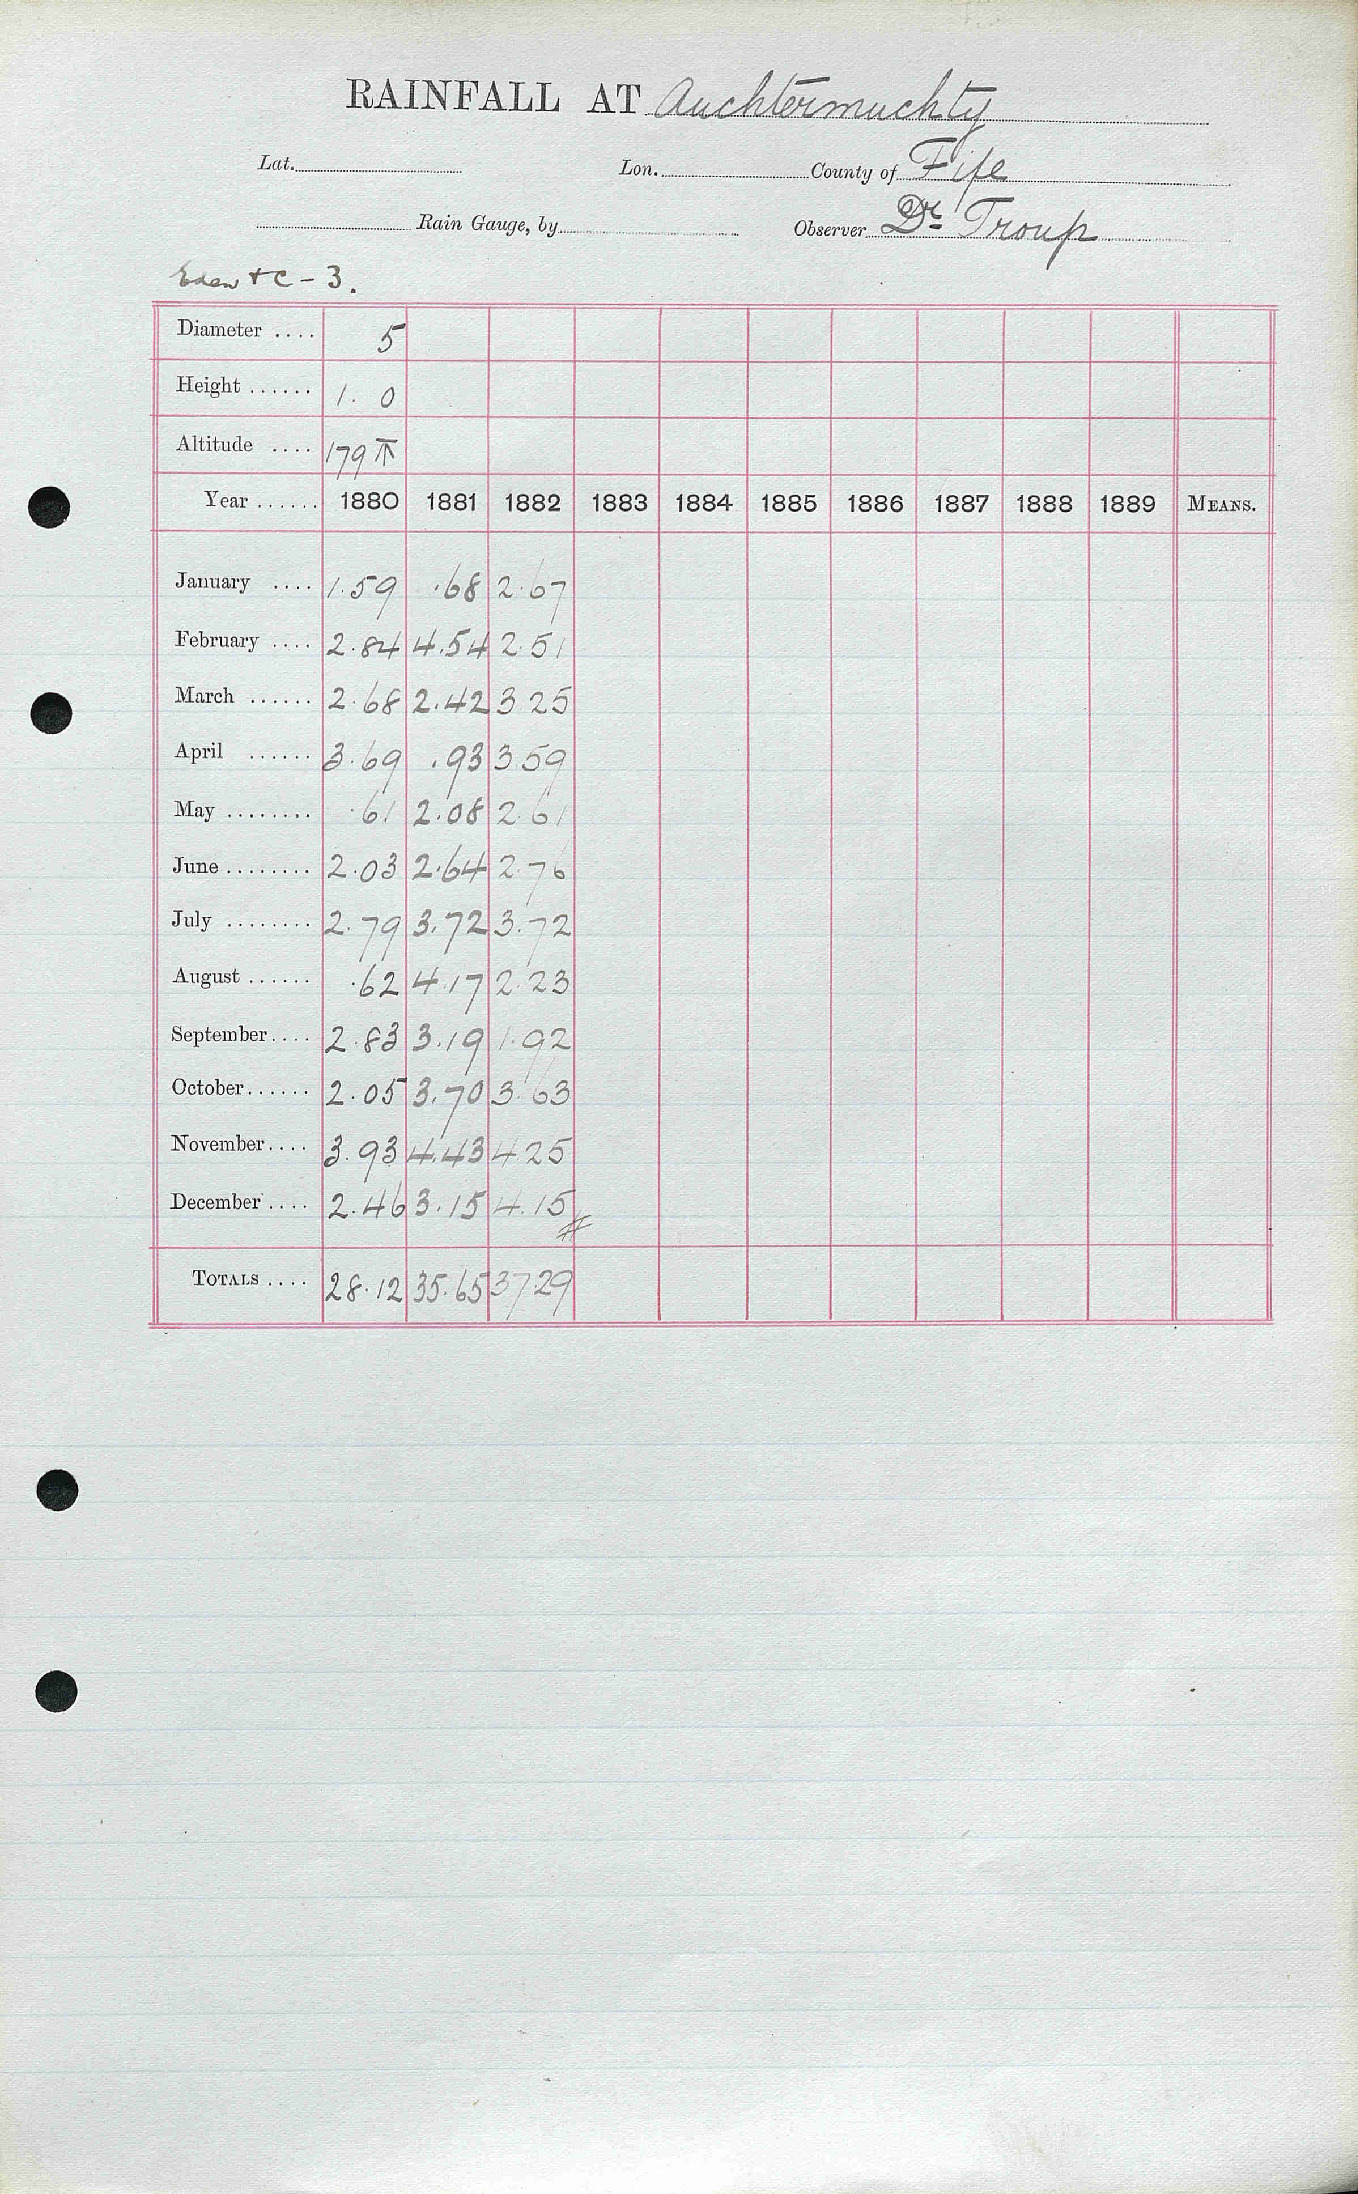 RAINFALL AT Auchtermuchty
Lat. Lon. County of Fife
Rain Gauge, by Observer Dr. Troup
Eden + C - 3.
Diameter .... 5
Height ...... 1. 0
Altitude .... 179
Year ...... 1880 1881 1882 1883 1884 1885 1886 1887 1888 1889 MEANS.
January .... 1.59 .68 2.67
February .... 2.84 4.54 2.51
March ...... 2.68 2.42 3 25
April ...... 3.69 .93 3.59
May ........ .61 2.08 2.61
June ........ 2.03 2.64 2.76
July ........ 2.79 3.72 3.72
August ...... .62 4.17 2.23
September .... 2.83 3.19 1.92
October ...... 2.05 3.70 3.63
November .... 3.93 4.43 4.25
December .... 2.46 3.15 4.15 #
TOTALS .... 28.12 35.65 37.29